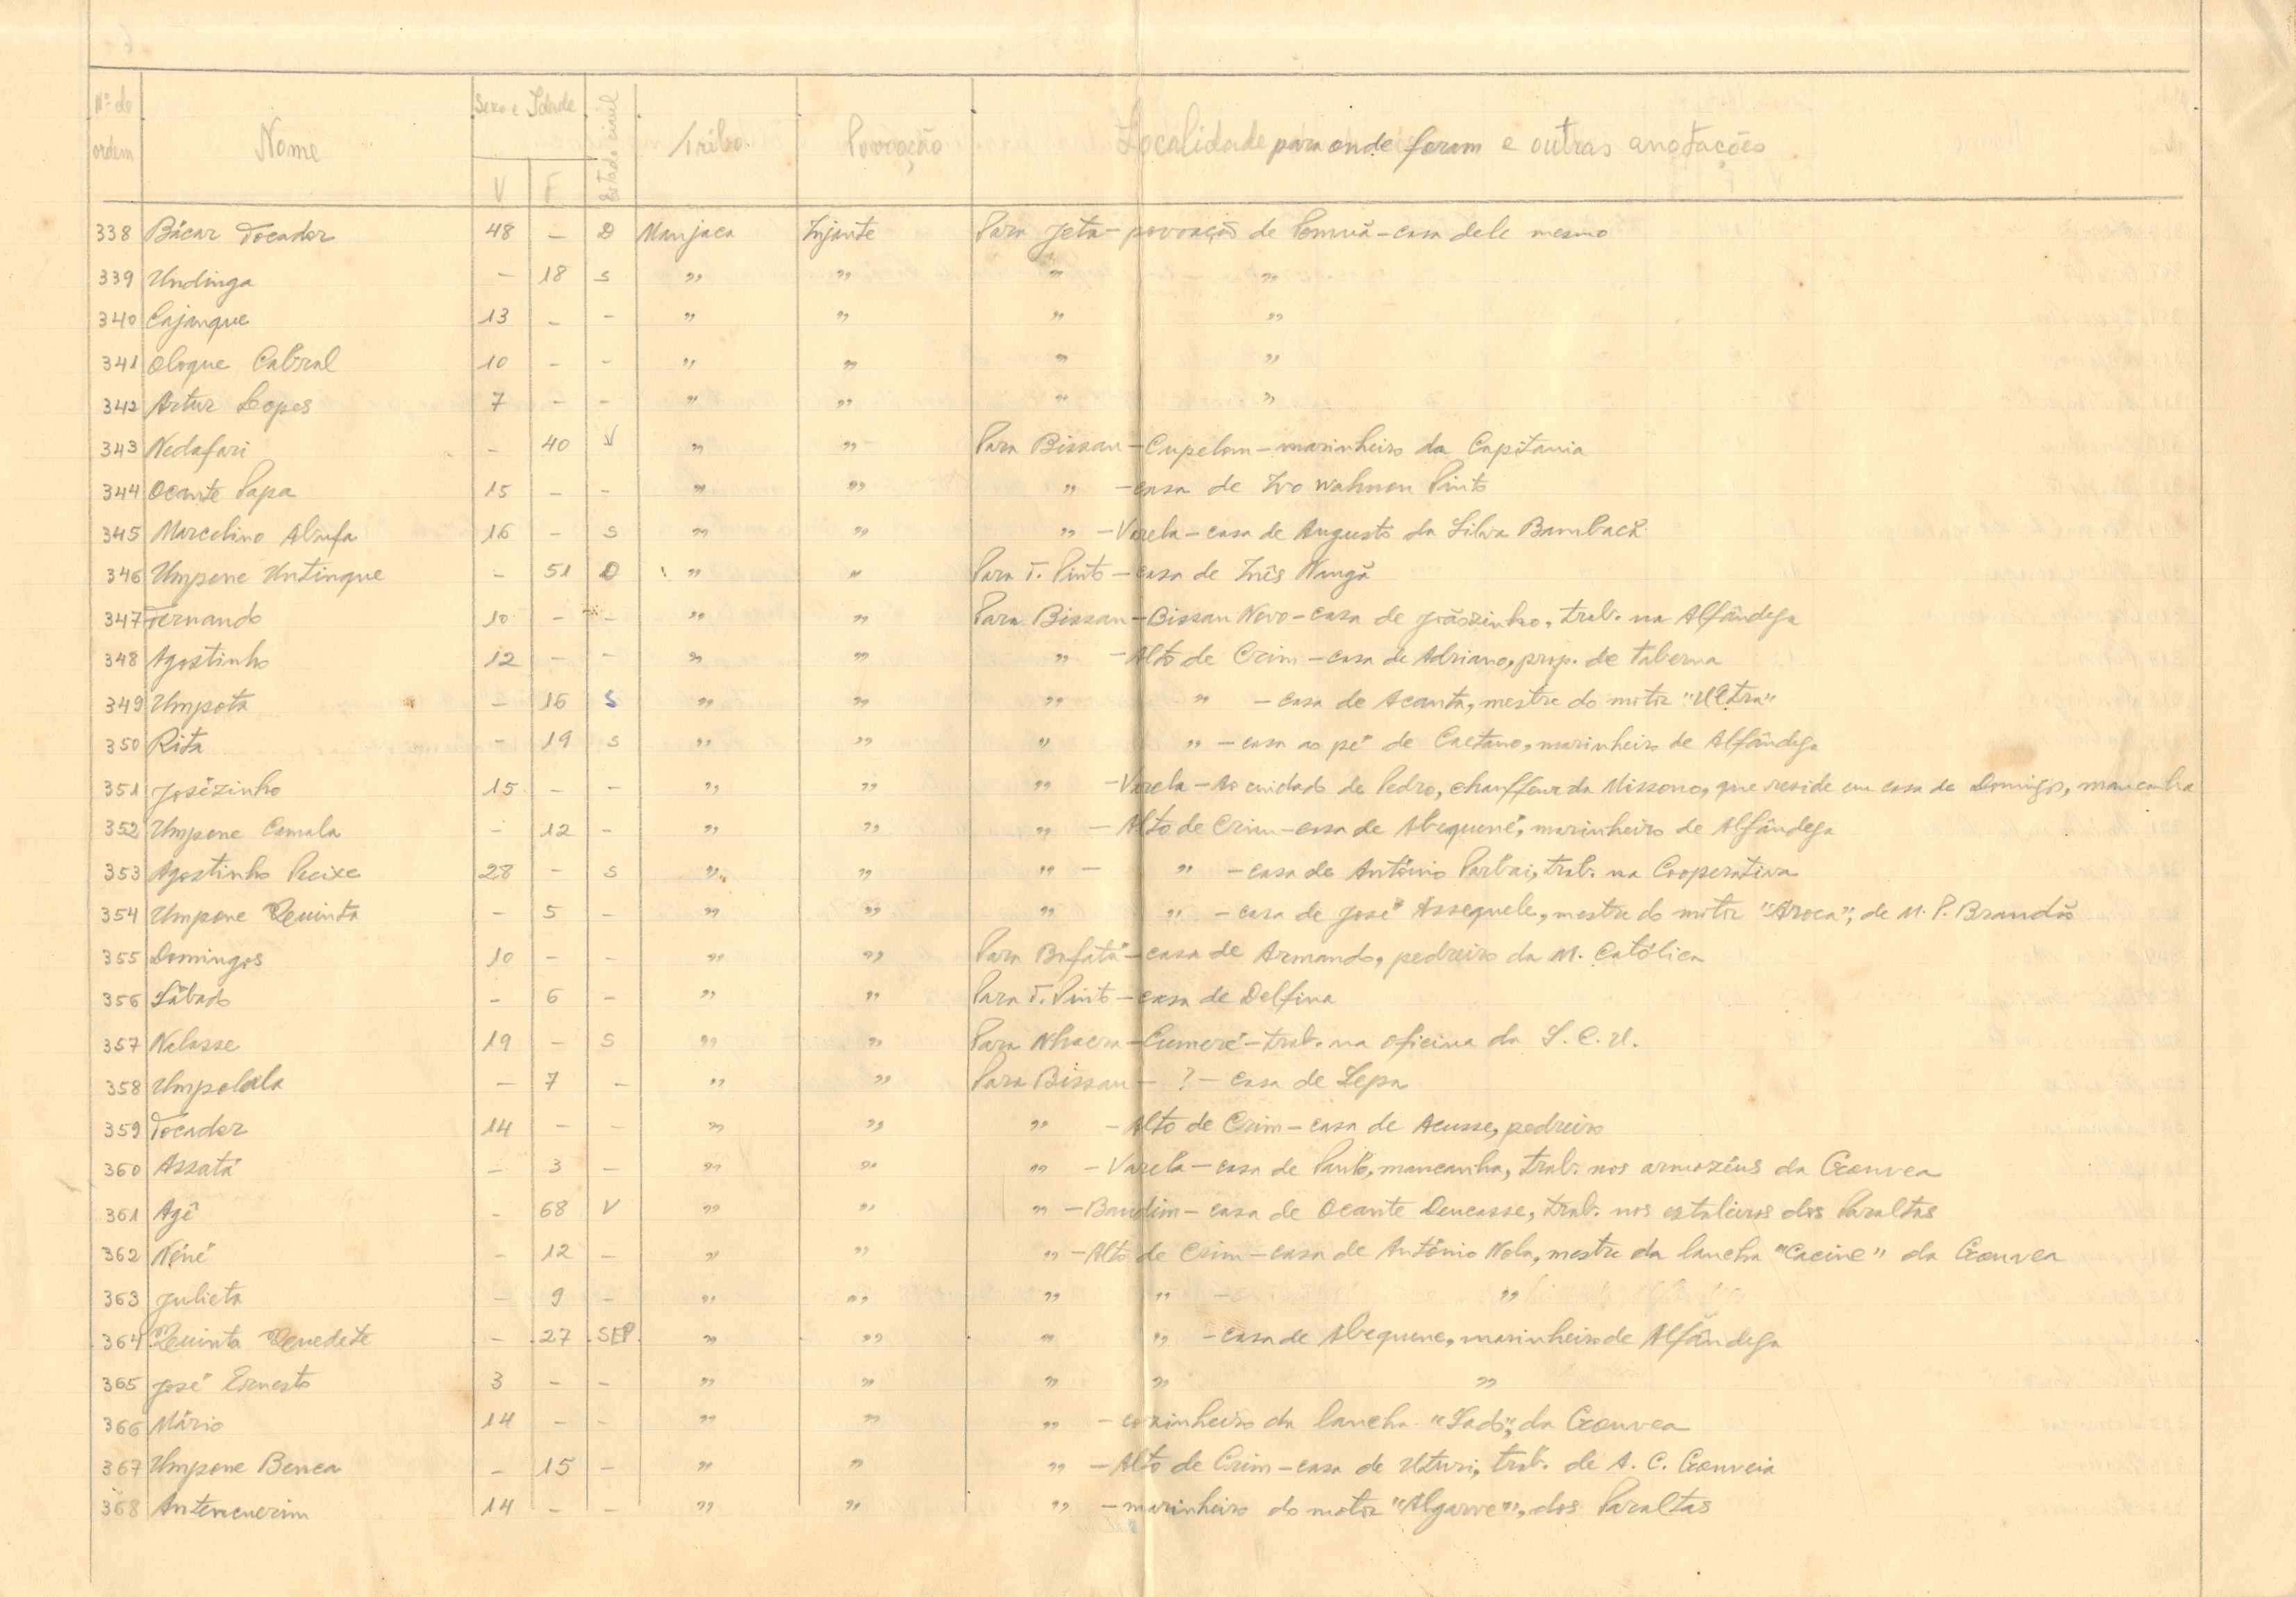 Nº de ordem Nome Sexo e Idade V F Estado civil Tribo Povoação Localidade para onde foram e outras anotações
338 Bácar Tocador 48 — D Manjaca Injante Para Jeta — povoação de Pomuã — casa dele mesmo
339 Undinga — 18 S " " " "
340 Cajanque 13 — - " " " "
341 Oloque Cabral 10 - - " " " "
342 Artur Lopes 7 - - " " " "
343 Nedafari - 40 V " " Para Bissau — Cupelon — marinheiro da Capitania
344 Ocante Papa 15 - - " " " — casa de Ivo Wahnon Pinto
345 Marcelino Abufa 16 - S " " " — Varela — casa de Augusto da Silva Bambacã
346 Umpone Untinque - 51 D " " Para T. Pinto — casa de Inês Nangã
347 Fernando 10 - - " " Para Bissau — Bissau Novo — casa de Joãozinho, trab. na Alfândega
348 Agostinho 12 - - " " " — Alto de Crim — casa de Adriano, prop. de taberna
349 Umpota - 16 S " " " " — casa de Acanta, mestre do motor "Ultra"
350 Rita - 19 S " " " " — casa ao pé de Caetano, marinheiro de Alfândega
351 Josézinho 15 - - " " " — Varela — Ao cuidado de Pedro, chauffeur da Missono, que reside em casa de Domingos, mancanha
352 Umpone Camala - 12 - " " " — Alto de Crim — casa de Abequené, marinheiro de Alfândega
353 Agostinho Peixe 28 - S " " " — " — casa de António Parbai, trab. na Cooperativa
354 Umpone Quinta - 5 - " " " " — casa de José Assequele, mestre do motor "Aroca", de M. P. Brandão
355 Domingos 10 - - " " Para Bafatá — casa de Armando, pedreiro da M. Católica
356 Sábado - 6 - " " Para T. Pinto — casa de Delfina
357 Nelasse 19 - S " " Para Nhacra — Cumeré — trab. na oficina da S. C. U.
358 Umpolala - 7 - " " Para Bissau — ? — casa de Lepa
359 Tocador 14 - - " " " — Alto de Crim — casa de Acusse, pedreiro
360 Assatá - 3 - " " " — Varela — casa de Paulo, mancanha, trab. nos armazéns da Gouvea
361 Agê - 68 V " " " — Bandim — casa de Ocante Deucasse, trab. nos estaleiros dos Paraltas
362 Néné - 12 - " " " — Alto de Crim — casa de António Nola, mestre da lancha "Cacine" da Gouvea
363 Julieta - 9 - " " " " — "
364 Quinta Quedete - 27 SEP. " " " " — casa de Abequene, marinheiro de Alfândega
365 José Ernesto 3 - - " " " " "
366 Mário 14 - - " " " — cozinheiro da lancha "Sado", da Gouvea
367 Umpone Benca - 15 - " " " — Alto de Crim — casa de Uturi, trab. de A. C. Gouveia
368 Antencuerim 14 - - " " " — marinheiro do motor "Algarve", dos Paraltas